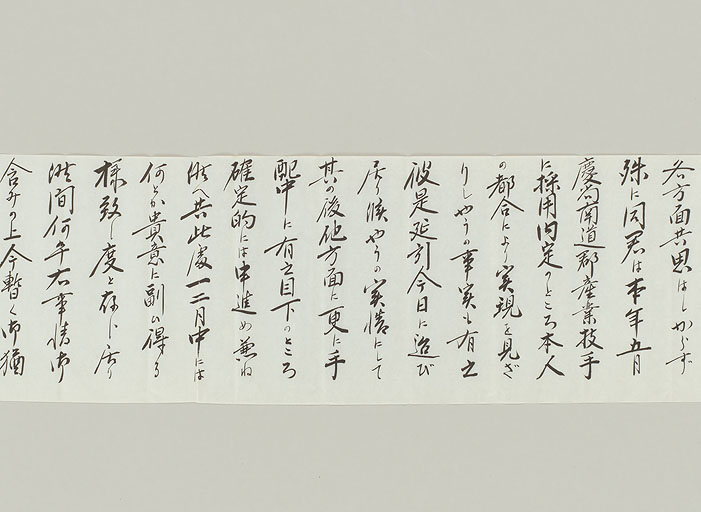 各方面共思はしからず
殊に同君は本年五月
慶尚南道郡産業技手
に採用内定のところ本人
の都合により実現を見ざ
りしやうの事実も有之
彼是延引今日に迨び
居り候やうの実情にして
其の後他方面に更に手
配中に有之目下のところ
確定的には申進め兼ね
候へ共此處一二月中には
何とか貴意に副ひ得る
様致し度と存じ居り
候間何卒右事情御
含みの上今暫く御猶